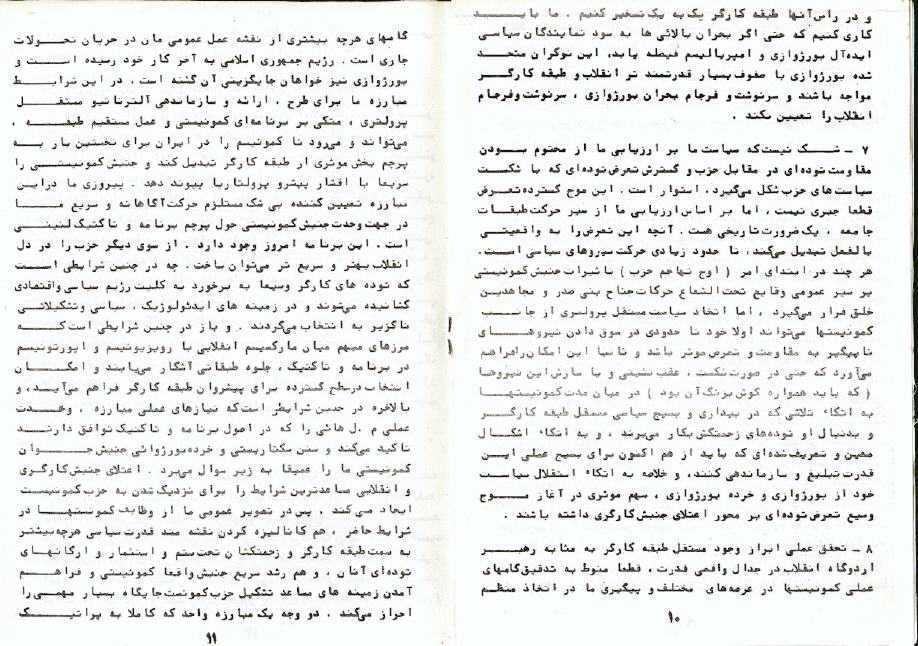 و در راس آنها طبقه کارگر یک به یک تسخیر کنیم . ما بایـــد
کاری کنیم که حتی اگر بحران بالائی ها به سود نمایندگان سیاسی
ایده‌آل بورژوازی و امپریالیسم فیصله یابد، این نوکران متحـد
شده بورژوازی با صفوف بسیار قدرتمند تر انقلاب و طبقه کارگــر
مواجه باشند و سرنوشت و فرجام بحران بورژوازی ، سرنوشت وفرجام
انقلاب را تعیین نکند .
۷ ــ شــک نیست که سیاست ما بر ارزیابی ما از محتوم بـــودن
مقاومت توده‌ای در مقابل حزب و گسترش تعرض توده‌ای که با شکست
سیاست های حزب شکل می‌گیرد ، استوار است . این موج گسترده تعــرض
قطعا جبری نیست ، اما بر اساس ارزیابی ما از سیر حرکت طبقــات
جامعه ، یک ضرورت تاریخی هست . آنچه این تعرض را به واقعیتی
بالفعل تبدیل می‌کند، تا حدود زیادی حرکت نیروهای سیاسی اســت .
هر چند در ابتدای امر ( اوج تهاجم حزب ) تاثیرات جنبش کمونیستی
بر سیر عمومی وقایع تحت الشعاع حرکات جناح بنی صدر و مجاهدین
خلق قرار می‌گیرد ، اما اتخاذ سیاست مستقل پرولتری از جانــب
کمونیستها می‌تواند اولا خود تا حدودی در سوق دادن نیروهـــای
ناپیگیر به مقاومت و تعرض موثر باشد و ثانیا این امکان را فراهم
می‌آورد که حتی در صورت شکست ، عقب نشینی و یا سازش این نیروها
( که باید همواره گوش بزنگ آن بود ) در میان مدت کمونیستهــا
به اتکاء تلاشی که در بیداری و بسیج سیاسی مستقل طبقه کارگــر
و بدنبال او توده‌های زحمتکش بکار می‌برند ، و به اتکاء اشکــال
معین و تعریف شده‌ای که باید از هم اکنون برای بسیج عملی ایــن
قدرت تبلیغ و سازماندهی کنند، و خلاصه به اتکاء استقلال سیاســت
خود از بورژوازی و خرده بورژوازی ، سهم موثری در آغاز مــــوج
وسیع تعرض توده‌ای بر محور اعتلای جنبش کارگری داشته باشند .
۸ ــ تحقق عملی ابراز وجود مستقل طبقه کارگر به مثابه رهبـــر
اردوگاه انقلاب در جدال واقعی قدرت ، قطعا منوط به تدقیق گامهای
عملی کمونیستها در عرصه‌های مختلف و پیگیری ما در اتخاذ منظــم
۱۰
گامهای هرچه بیشتری از نقشه عمل عمومی مان در جریان تحـــولات
جاری است . رژیم جمهوری اسلامی به آخر کار خود رسیده اســـت و
بورژوازی نیز خواهان جایگزینی آن گشته است . در این شرایــط
مبارزه ما برای طرح ، ارائه و سازماندهی آلترناتیو مستقــــل
پرولتری ، متکی بر برنامه‌ای کمونیستی و عمل مستقیم طبقـــه ،
می‌تواند و می‌رود تا کمونیسم را در ایران برای نخستین بار بــه
پرچم بخش موثری از طبقه کارگر تبدیل کند و جنبش کمونیستــی را
سریعا با اقشار پیشرو پرولتاریا پیوند دهد . پیروزی ما دراین
مبارزه تعیین کننده بی شک مستلزم حرکت آگاهانه و سریع مــــا
در جهت وحدت جنبش کمونیستی حول پرچم برنامه و تاکتیک لنینــی
است . این برنامه امروز وجود دارد . از سوی دیگر حزب را در دل
انقلاب بهتر و سریع تر می‌توان ساخت . چه در چنین شرایطی اســت
که توده های کارگر وسیعا به برخورد به کلیت رژیم سیاسی واقتصادی
کشانیده می‌شوند و در زمینه های ایدئولوژیک ، سیاسی و تشکیلاتــی
ناگزیر به انتخاب می‌گردند . و باز در چنین شرایطی است کــــه
مرزهای مبهم میان مارکسیسم انقلابی با رویزیونیسم و اپورتونیسم
در برنامه و تاکتیک ، جلوه طبقاتی آشکار می‌یابند و امکـــان
انتخاب در سطح گسترده برای پیشروان طبقه کارگر فراهم می‌آیــد، و
بالاخره در چنین شرایطی است که نیازهای عملی مبارزه ، وحــدت
عملی م . ل هائی را که در اصول برنامه و تاکتیک توافق دارنــد
تاکید می‌کند و سنن سکتاریستی و خرده بورژوائی جنبش جـــوان
کمونیستی ما را عمیقا به زیر سوال می‌برد . اعتلای جنبش کارگــری
و انقلابی مساعدترین شرایط را برای نزدیک شدن به حزب کمونیست
ایجاد می کند . پس در تصویر عمومی ما از وظایف کمونیستهــا در
شرایط حاضر ، هم کانالیزه کردن نقشه مند قدرت سیاسی هرچه بیشتر
به سمت طبقه کارگر و زحمتکشان تحت ستم و استثمار و ارگانهــای
توده‌ای آنان ، و هم رشد سریع جنبش واقعا کمونیستی و فراهــم
آمدن زمینه های مساعد تشکیل حزب کمونیست جایگاه بسیار مهمــی را
احراز می‌کند . دو وجه یک مبارزه واحد که کاملا به پراتیــــک
۱۱